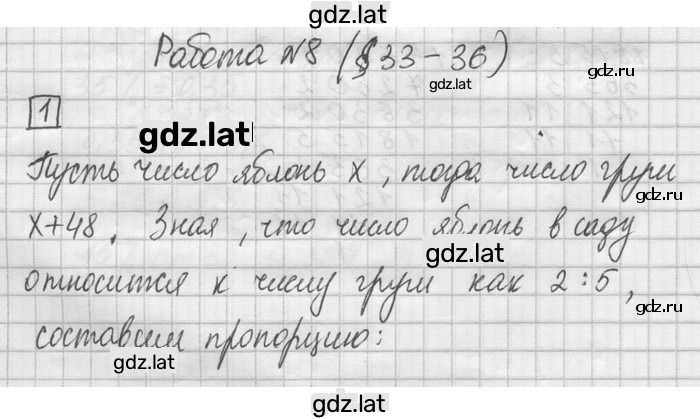 gdz.lat
Работа №8 (§33-36)
gdz.lat
gdz.ru
1
gdz.lat
Пусть число яблонь x, тогда число груш
gdz.ru
x+48. Зная, что число яблонь в саду
gdz.lat
gdz.ru
относится к числу груш как 2:5,
gdz.ru
составим пропорцию:
gdz.lat
gdz.lat
gdz.ru
gdz.lat